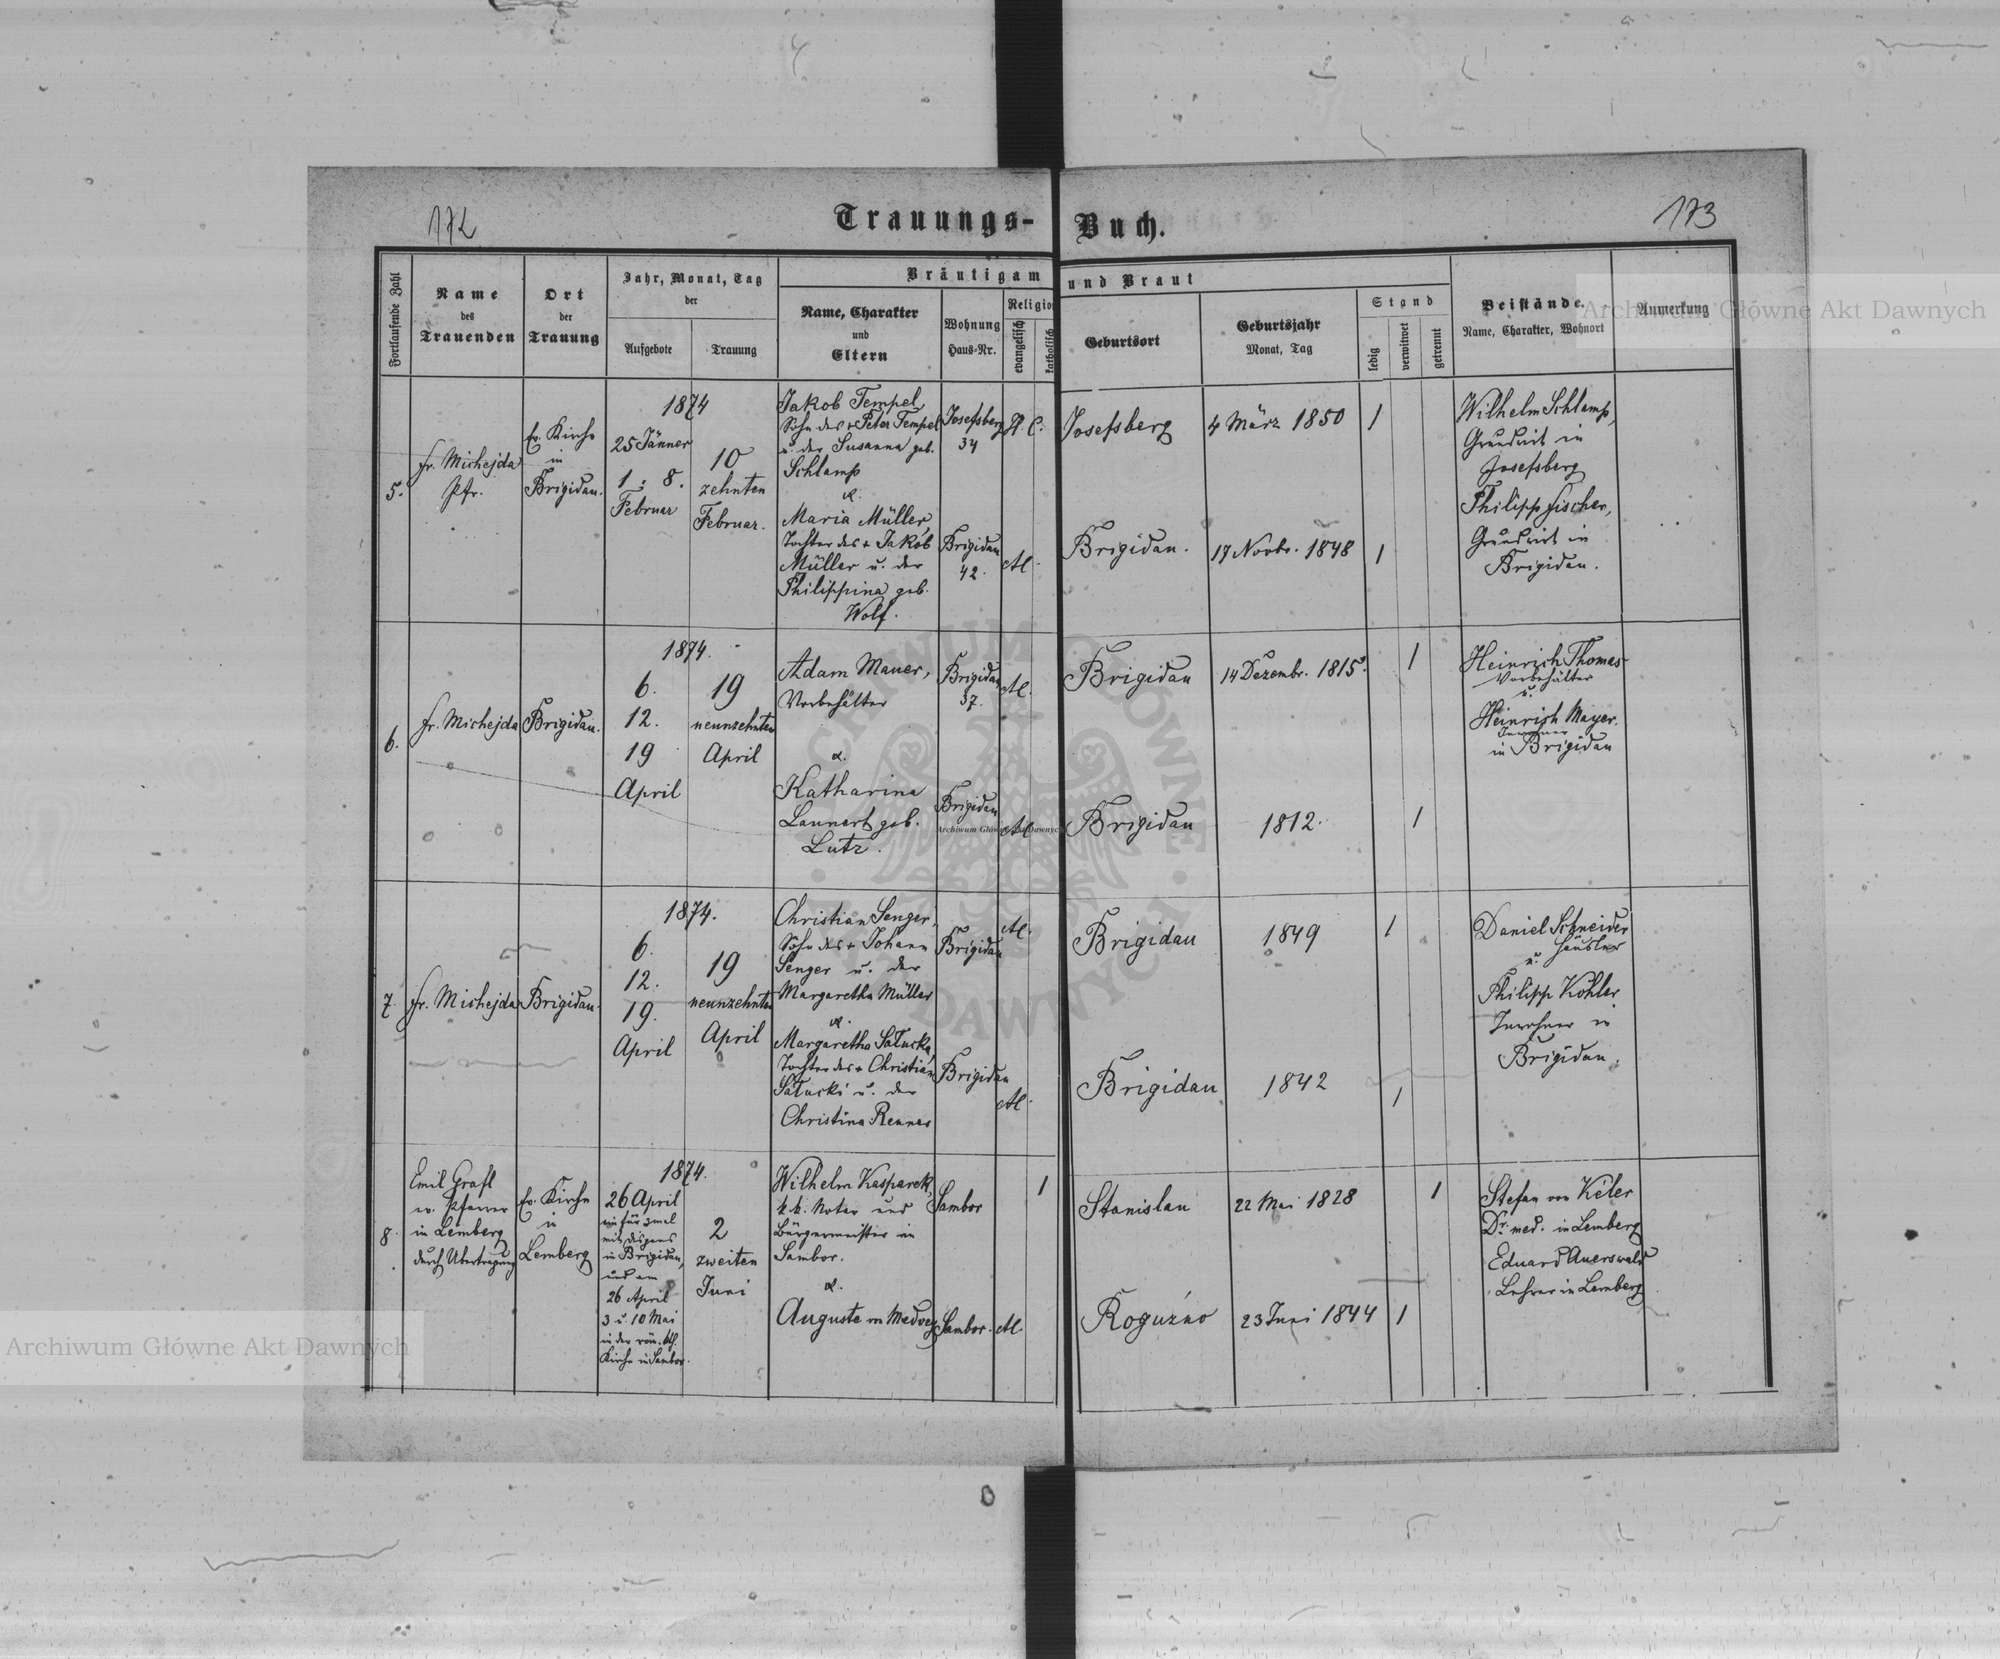 172
Trauungs-Buch.
173
Fortlaufende Zahl
Name
des
Trauenden
Ort
der
Trauung
Jahr, Monat, Tag
der
Aufgebote
Trauung
Bräutigam und Braut
Name, Charakter
und
Eltern
Wohnung
Haus-Nr.
Religio
evangelisch
katholisch
Geburtsort
Geburtsjahr
Monat, Tag
Stand
ledig
verwitwet
getrennt
Beistände
Name, Charakter, Wohnort
Anmerkung
5.
Fr. Michejda
Pfr.
Ev. Kirche
in
Brigidau.
1874
25 Jänner
1. 8.
Februar
10
zehnten
Februar.
Jakob Tempel
Sohn des + Peter Tempel
u. der Susanna geb.
Schlamp
&.
Maria Müller,
Tochter des + Jakob
Müller u. der
Philippina geb.
Wolf.
Josefsberg
34
H. C.
Brigidau
42.
A.
Josefsberg
4 März 1850
1
Brigidau.
17 Novbr. 1848
1
Wilhelm Schlamp,
Grundwirt in
Josefsberg
Philipp Fischer,
Grundwirt in
Brigidau.
6.
Fr. Michejda
Brigidau.
1874.
6.
12.
19
April
19
neunzehnten
April
Adam Mauer,
Vorbehälter
&.
Katharina
Lannert geb.
Lutz.
Brigidau
37.
A.
Brigidau
A.
Brigidau
14 Dezembr. 1815.
1
Brigidau
1812.
1
Heinrich Thomas
Vorbehälter
u.
Heinrich Mayer.
Inwohner
in Brigidau
7.
Fr. Michejda
Brigidau.
1874.
6.
12.
19.
April
19
neunzehnten
April
Christian Senger,
Sohn des + Johann
Senger u. der
Margaretha Müller
&.
Margaretha Sałucka,
Tochter des + Christian
Sałucki u. der
Christina Renner
Brigidau
A.
Brigidau
A.
Brigidau
1849
1
Brigidau
1842
1
Daniel Schneider
Häusler
u.
Philipp Köhler
Inwohner in
Brigidau.
8.
Emil Grafl
ev. Pfarrer
in Lemberg
durch Übertragung
Ev. Kirche
in
Lemberg
1874.
26 April
ein für 3mal
mit Dispens
in Brigidau,
und am
26 April
3 u. 10 Mai
in der röm. kth.
Kirche in Sambor.
2
zweiten
Juni
Wilhelm Kasparek,
k. k. Notar und
Bürgermeister in
Sambor.
&.
Auguste von Medvey
Sambor
1
Sambor.
A.
Stanislau
22 Mai 1828
1
Roguźno
23 Juni 1844
1
Stefan von Kéler
Dr. med. in Lemberg
Eduard Auerswald
Lehrer in Lemberg
Archiwum Główne Akt Dawnych
Archiwum Główne Akt Dawnych
Archiwum Główne Akt Dawnych
ARCHIWUM GŁÓWNE
AKT DAWNYCH